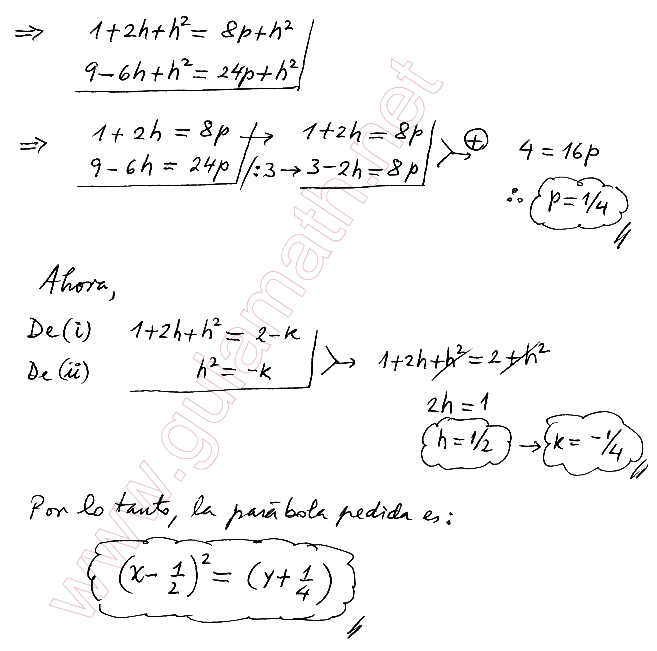 ⇒ 1+2h+h² = 8p+h²
9−6h+h² = 24p+h²
⇒ 1+2h = 8p → 1+2h = 8p ⊕ 4 = 16p
9−6h = 24p /:3 → 3−2h = 8p
∴ p = 1/4
Ahora,
De (i) 1+2h+h² = 2−k
De (ii) h² = −k
1+2h+h² = 2+h²
2h = 1
h = 1/2 → k = −1/4
Por lo tanto, la parábola pedida es:
(x − 1/2)² = (y + 1/4)
www.guiamath.net